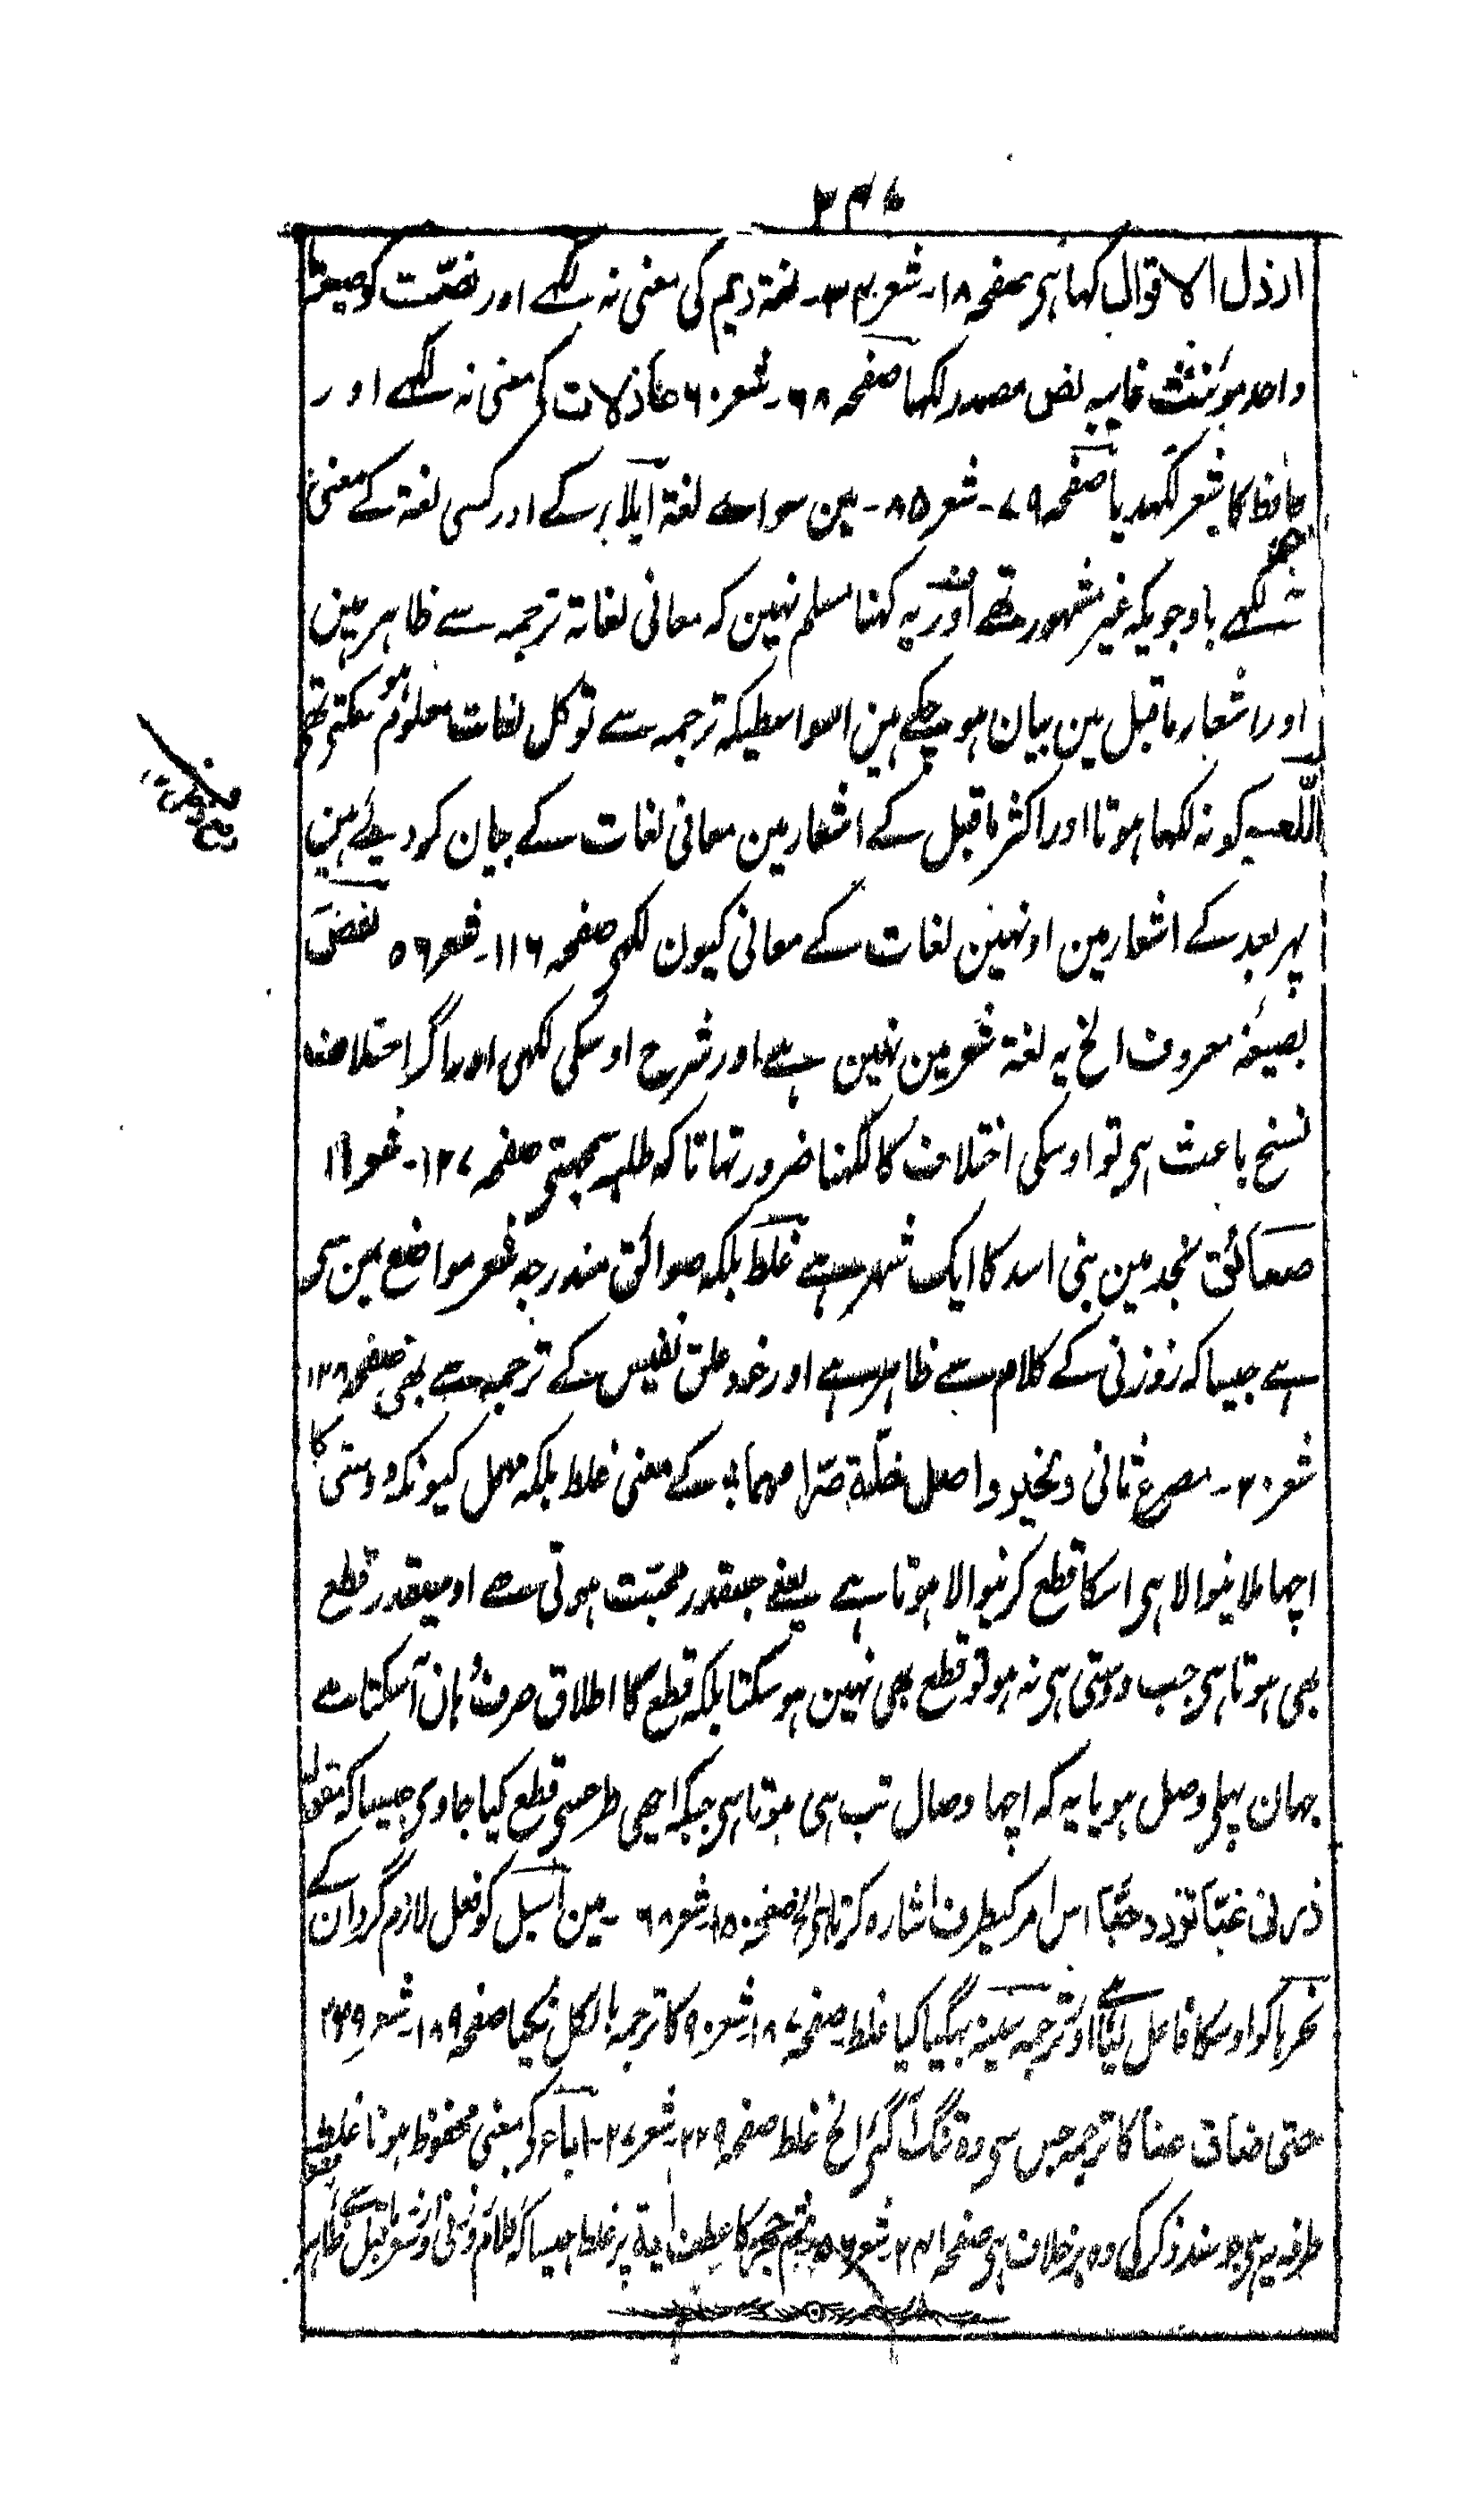 ۲۴۰
ارذل الاقوال کہا ہی صفحہ ۱۸۔ شعر ۳۴۔ لغۃ دیم کی معنی نہ لکھے اور نضّت کو صیغہ
واحد مونث غایب نض مصدر لکھا صفحہ ۶۸۔ شعر ۶۰ عاذلات کی معنی نہ لکھے اور
حافظ کا شعر لکھدیا صفحہ ۷۹۔ شعر ۸۵۔ مین سواے لغۃ آبلا کے اور کسی لغۃ کے معنی
نہ لکھے باوجویکہ غیر مشہور تھے اور یہ کہنا مسلم نہین کہ معانی لغاتہ ترجمہ سے ظاہر ہین
اور اشعار ماقبل مین بیان ہو چکے ہین اسواسطیکہ ترجمہ سے تو کل لغات معلوم ہو سکتی تھی
اللعب کو نہ لکھا ہوتا اور اکثر ماقبل کے اشعار مین معانی لغات کے بیان کر دیئے ہین
پھر بعد کے اشعار مین اونہین لغات کے معانی کیون لکھی صفحہ ۱۱۶۔ شعر ۵۶ نغض
بصیغہ معروف الخ یہ لغۃ شعر مین نہین ہے اور شرح اوسکی لکھی اور اگر اختلاف
نسخ باعث ہی تو اوسکی اختلاف کا لکھنا ضرور تھا تاکہ طلبہ سمجہتی صفحہ ۱۲۷۔ شعر ۱۶
صعائق نجد مین بنی اسد کا ایک شہر ہے غلط بلکہ صوائق مندرجہ شعر مواضع یمن سی
ہے جیسا کہ زوزنی کے کلام سے ظاہر ہے اور خود علق نفیس کے ترجمہ سے بھی صفحہ ۱۲۸
شعر ۲۰۔ مصرع ثانی و لخیر واصل خلّۃ صرّامہا بہ کے معنی غلط بلکہ مہمل کیونکہ دوستی کا
اچہا ملانیوالا ہی اسکا قطع کرنیوالا ہوتا ہے یعنے جسقدر محبّت ہوتی ہے اوسیقدر قطع
بھی ہوتا ہی جب دوستی ہی نہ ہو تو قطع بھی نہین ہو سکتا بلکہ قطع کا اطلاق صرف وہان آ سکتا ہے
جہان پہلی وصل ہو یا یہ کہ اچہا وصال تب ہی ہوتا ہی جبکہ اچھی طرحسی قطع کیا جاوی جیسا کہ مقولہ
زرنی غبّا تزدد حبّا اس امر کیطرف اشارہ کرتا ہی الخ صفحہ ۱۵۰۔ شعر ۶۸۔ مین اسہل کو فعل لازم گردان کے
نحرہا کو اوسکا فاعل کیا ہے اور ترجمہ سینہ بہگیا کیا غلط۔ صفحہ ۱۸۷۔ شعر ۹۰ کا ترجمہ بالکل نکیا صفحہ ۱۸۹۔ شعر ۲۴۹
حتی ضاق عنا کا ترجمہ جس سی وہ تنگ آ گئی الخ غلط صفحہ ۲۲۹۔ شعر ۱۰۲۷ باء کی معنی محفوظ ہونا غلط
طرفہ یہ ہی جو سند ذکر کی وہ بر خلاف ہی صفحہ ۲۴۱۔ شعر ۵۷۔ ثم حجر کا عطف آیۃ پر غلط جیسا کہ کلام زوزنی اور شعر ماقبل سے ظاہر